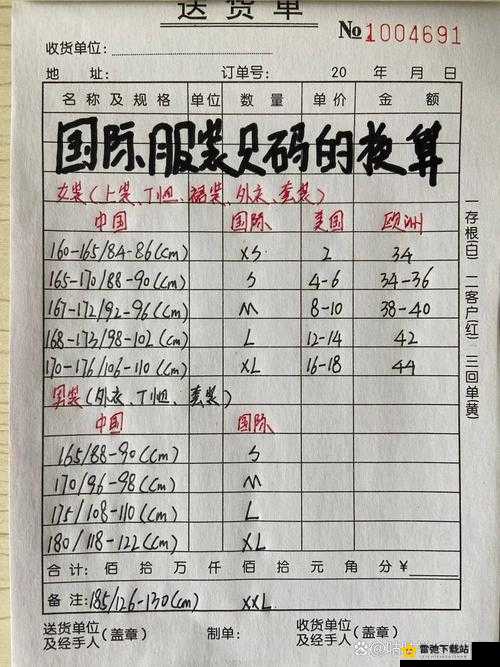 送货单
№1004691
收货单位:
地 址: 订单号: 20 年 月 日
名称及规格 单位 数量 单价 金额
国际服装尺码的换算
女装(上装、T恤、裙装、外衣、套装)
中国 国际 美国 欧洲
160-165/84-86(cm) XS 2 34
165-170/88-90(cm) S 4-6 34-36
167-172/92-96(cm) M 8-10 38-40
168-173/98-102(cm) L 12-14 42
170-176/106-110(cm) XL 16-18 44
男装(外衣、T恤、套装)
中国 国际
165/88-90(cm) S
170/96-98(cm) M
175/108-110(cm) L
180/118-122(cm) XL
合计: 佰 拾 万 仟 佰 拾 元 角 分 ¥
备注: 185/126-130(cm) XXL
送货单位及经手人(盖章) 制单: 收货单位及经手人(盖章)
一存根(白) 二客户(红) 三回单(黄)
雷弛下载站